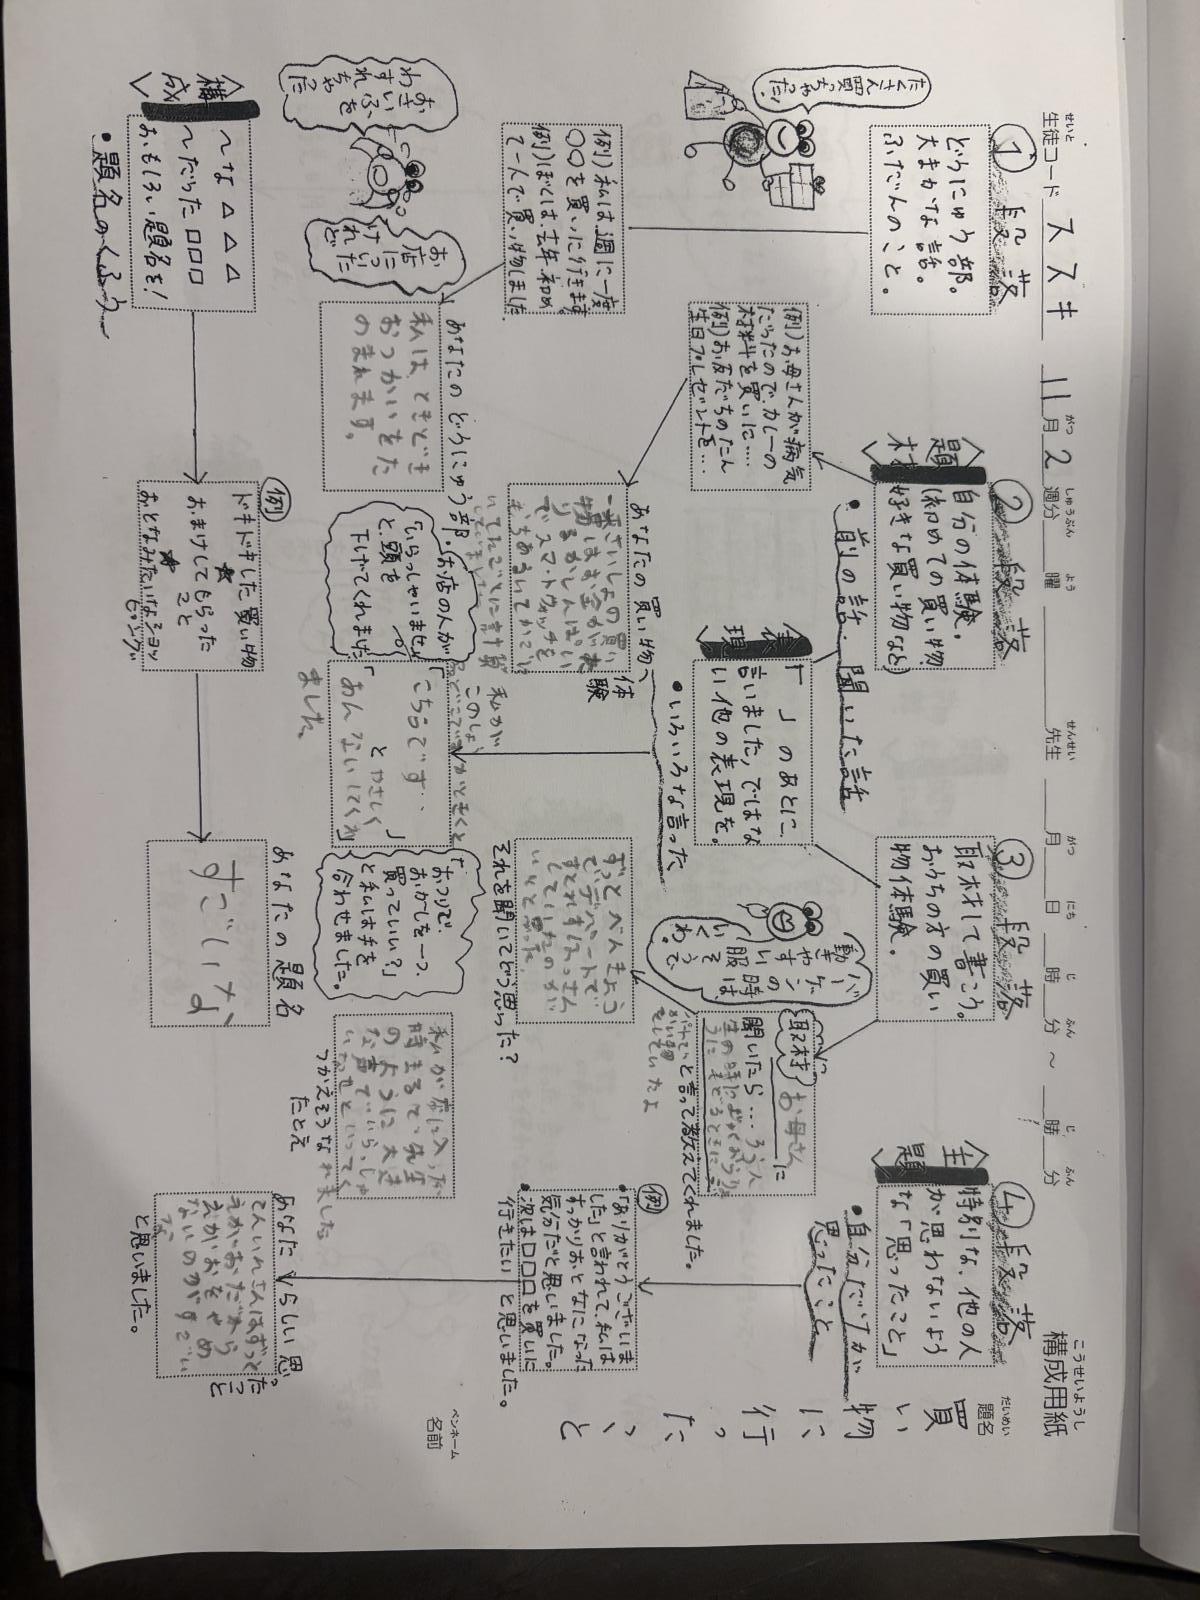 構成用紙
こうせいようし
生徒コード
せいと
ススキ
11月2週分
がつ
しゅうぶん
曜
よう
先生
せんせい
月
がつ
日
にち
時
じ
分
ふん
～
時
じ
分
ふん
題名
だいめい
買い物に行ったこと
ペンネーム
名前
①段落
どうにゅう部。
大まかな話。
ふだんのこと。
たくさん買っちゃった!
例)私は、週に一度
〇〇を買いに行きます
例)ぼくは、去年初め
て一人で買い物しました
おさいふを
わすれちゃった
お店に
ついた
けれど
あなたのどうにゅう部
私は、ときどき
おつかいをた
のまれます。
〈構成〉
～な△△△
～だった□□□
おもしろい題名を!
・題名のくふう
②段落
〈題材〉
自分の体験。
(初めての買い物
好きな買い物など)
・前の話・聞いた話
例)お母さんが病気
だったのでカレーの
材料を買いに…
例)お友だちのたん
生日プレゼントを…
あなたの買い物体験
・お店の人が
「いらっしゃいませ」
と、頭を
下げてくれました
例
ドキドキした買い物
おまけしてもらった
こと
おとなみたいなショッ
ピング
〈表現〉
「　」のあとに、
言いました、ではな
い他の表現を。
・いろいろな言った
私が
「こちらです、、」
とやさしく
あんないしてくれ
ました。
③段落
取材して書こう。
おうちの方の買い
物体験。
バーゲンの時は、
動きやすい服で
いくわ。
取材
お母さんに
聞いたら…
と言って教えてくれました。
それを聞いてどう思った?
「おつりで、
おかしを一つ、
買っていい?」
と私は手を
合わせました。
つかえそうな
たとえ
あなたの題名
すごいな
④段落
〈主題〉
特別な、他の人
が思わないよう
な「思ったこと」
・自分だけが
思ったこと
例
・「ありがとうございま
した」と言われて、私は
すっかりおとなになった
気分だと思いました。
・次は□□□を買いに
行きたいと思いました。
あなたらしい思ったこと
てんいんさんはずっと
えがおだから
えがおをやめ
ないのがすごい
な
と思いました。